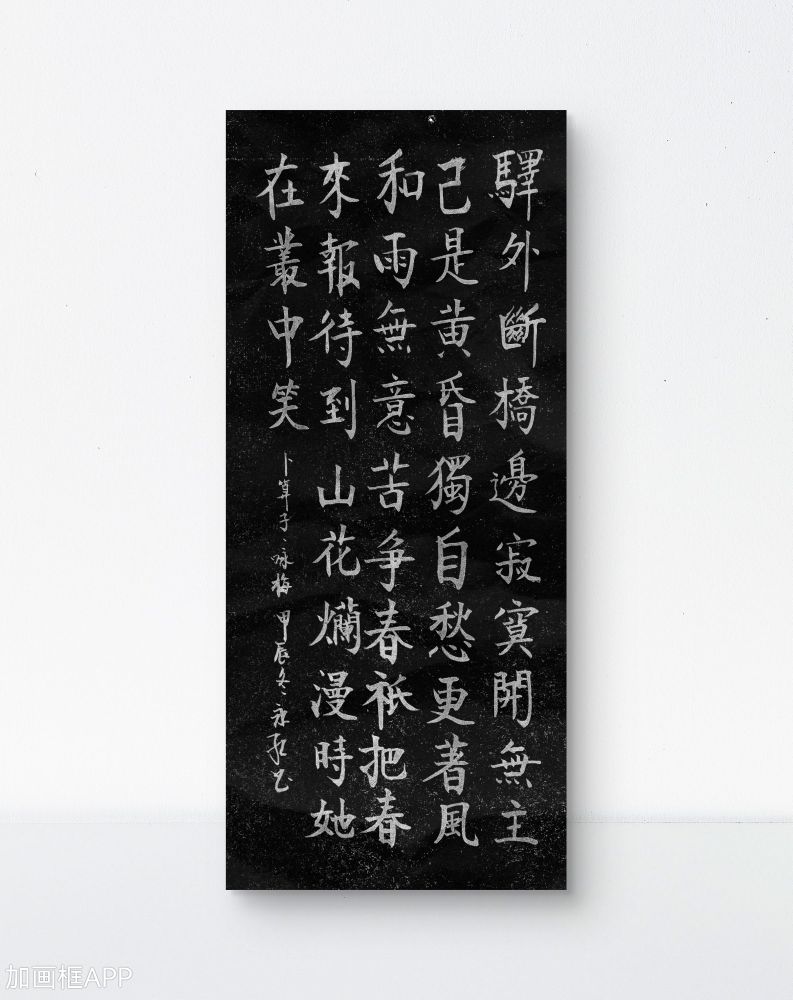 驛外斷橋邊寂寞開無主
己是黄昏獨自愁更著風
和雨無意苦争春祇把春
來報待到山花爛漫時她
在叢中笑
卜算子、咏梅 甲辰冬、永 书
加画框APP